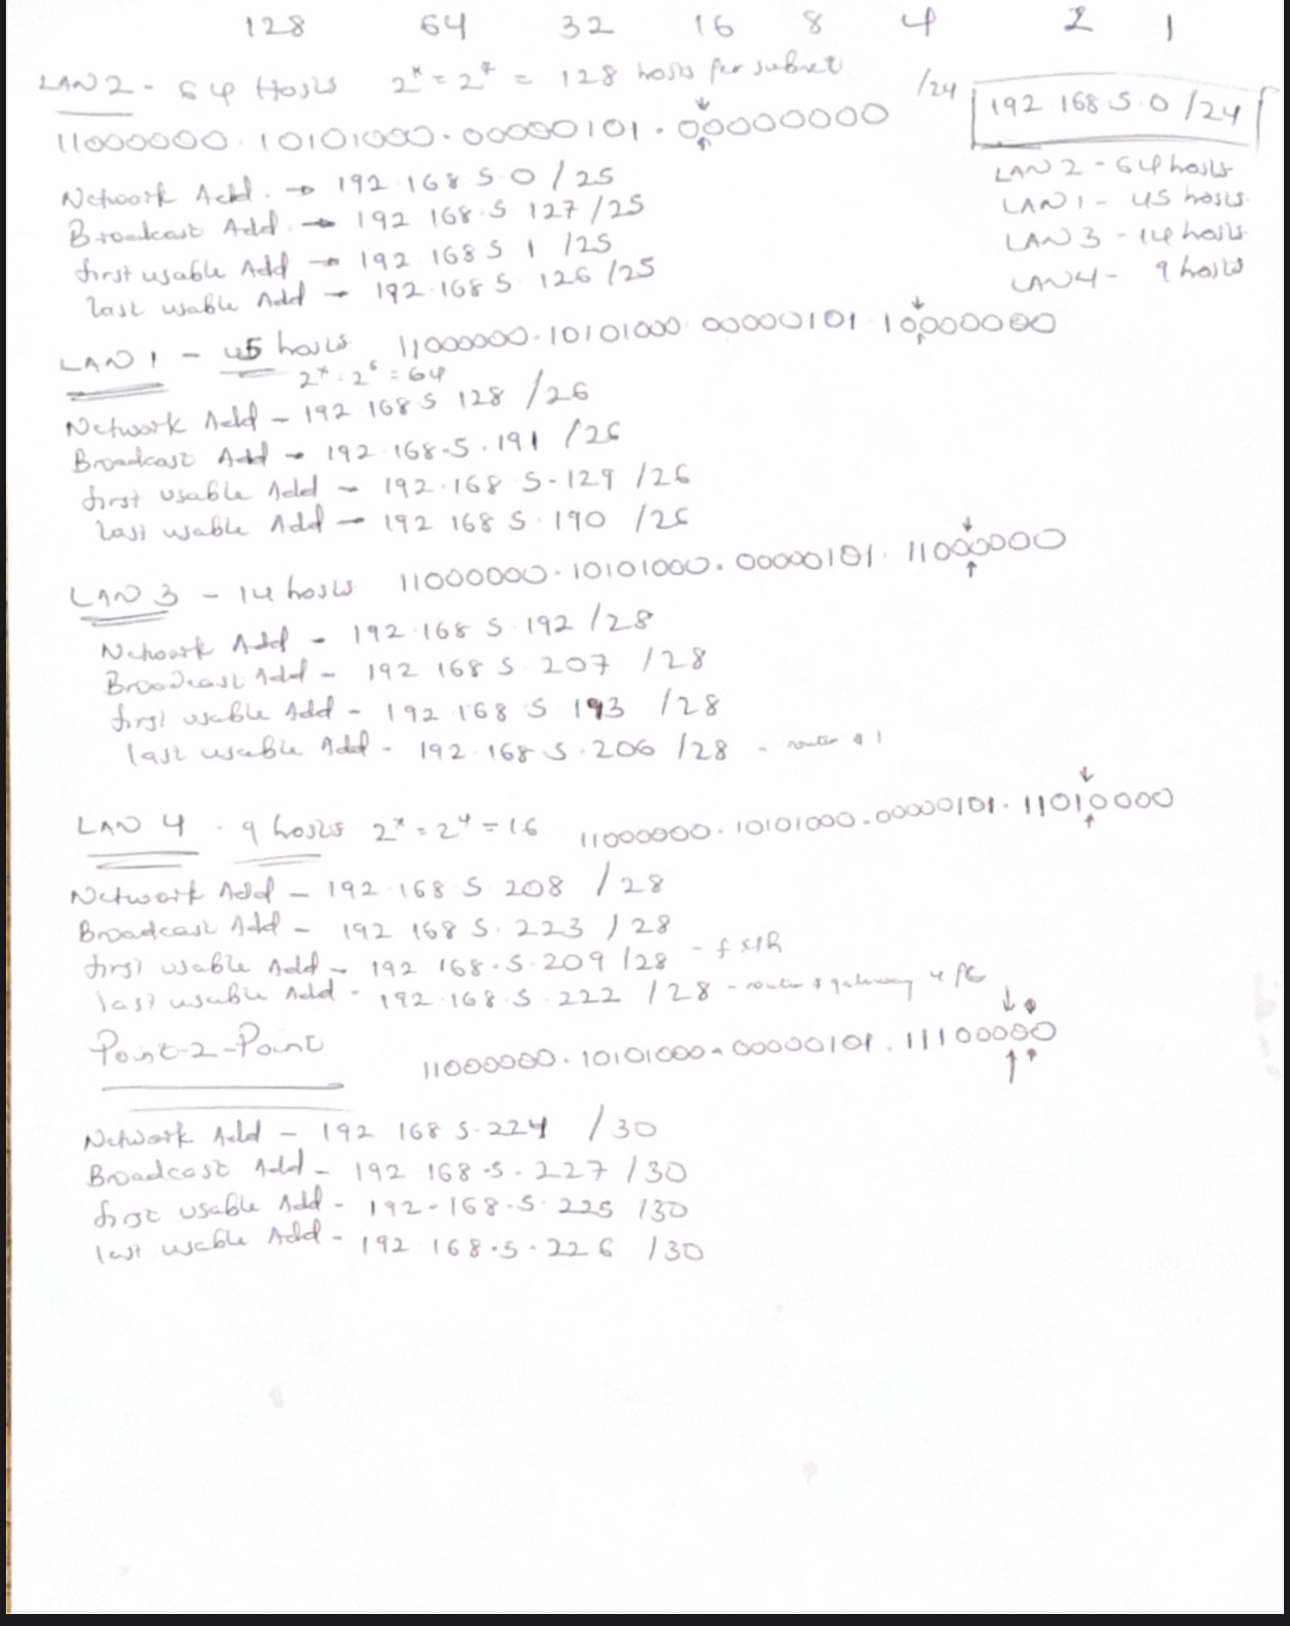 128 64 32 16 8 4 2 1
LAN 2 - 64 Hosts 2^x = 2^7 = 128 hosts per subnet
/24 192 168 5.0 /24
11000000.10101000.00000101.00000000
LAN 2 - 64 hosts
LAN 1 - 45 hosts
LAN 3 - 14 hosts
LAN 4 - 9 hosts
Network Add. → 192.168 5.0 / 25
Broadcast Add. → 192 168.5 127 /25
first usable Add → 192 168 5 1 /25
last usable Add → 192.168 5 126 /25
LAN 1 - 45 hosts 11000000.10101000.00000101.10000000
2^x = 2^6 = 64
Network Add - 192 168 5 128 /26
Broadcast Add - 192.168.5.191 /26
first usable Add - 192.168 5-129 /26
last usable Add - 192 168 5.190 /26
LAN 3 - 14 hosts 11000000.10101000.00000101.11000000
Network Add - 192.168 5.192 /28
Broadcast Add - 192 168 5.207 /28
first usable Add - 192 168 5 193 /28
last usable Add - 192.168 5.206 /28 - router
LAN 4 - 9 hosts 2^x = 2^4 = 16 11000000.10101000.00000101.11010000
Network Add - 192.168 5 208 /28
Broadcast Add - 192 168 5.223 /28
first usable Add - 192 168.5.209 /28
last usable Add - 192.168.5.222 /28 - router gateway 4 PC
Point-2-Point 11000000.10101000.00000101.11100000
Network Add - 192 168 5.224 /30
Broadcast Add - 192 168.5.227 /30
first usable Add - 192-168.5.225 /30
last usable Add - 192 168.5.226 /30